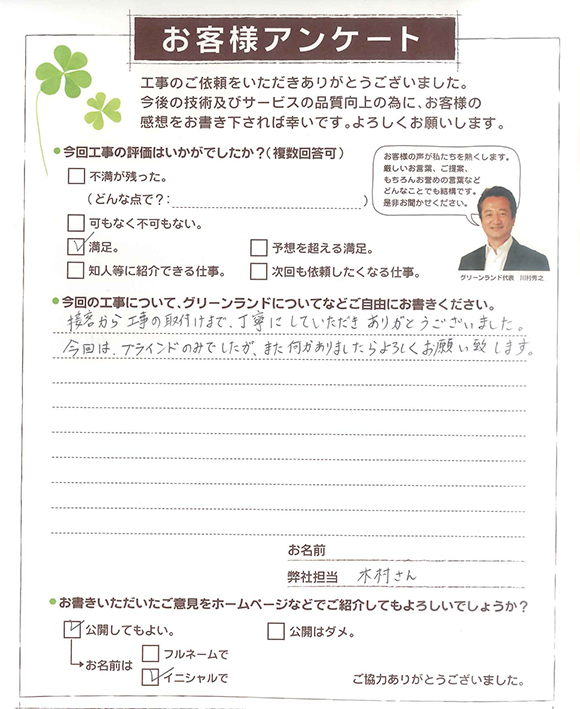 お客様アンケート
工事のご依頼をいただきありがとうございました。
今後の技術及びサービスの品質向上の為に、お客様の
感想をお書き下されば幸いです。よろしくお願いします。
今回工事の評価はいかがでしたか?(複数回答可)
不満が残った。
(どんな点で?: )
可もなく不可もない。
満足。
予想を超える満足。
知人等に紹介できる仕事。
次回も依頼したくなる仕事。
お客様の声が私たちを熱くします。
厳しいお言葉、ご提案、
もちろんお誉めの言葉など
どんなことでも結構です。
是非お聞かせください。
グリーンランド代表 川村秀之
今回の工事について、グリーンランドについてなどご自由にお書きください。
接客から工事の取付けまで、丁寧にしていただきありがとうございました。
今回は、ブラインドのみでしたが、また何かありましたらよろしくお願い致します。
お名前
弊社担当 木村さん
お書きいただいたご意見をホームページなどでご紹介してもよろしいでしょうか?
公開してもよい。
公開はダメ。
お名前は
フルネームで
イニシャルで
ご協力ありがとうございました。